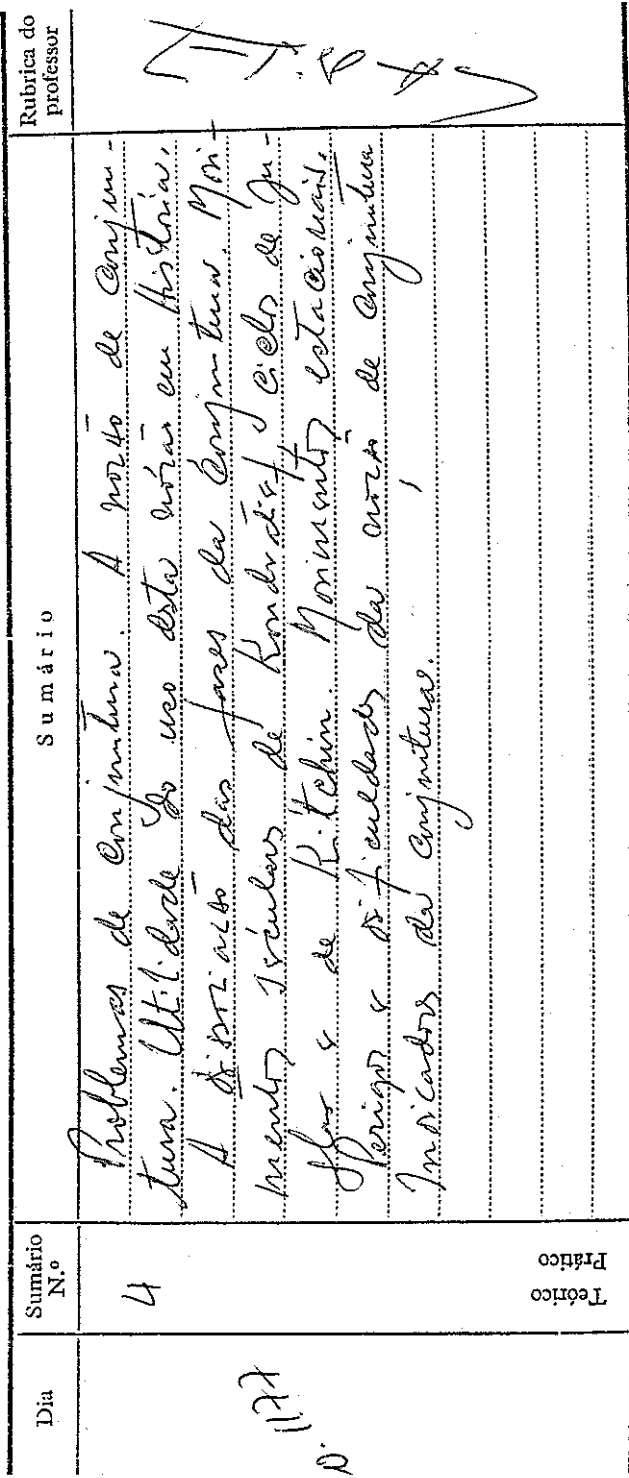 Dia
Sumário N.º
Sumário
Rubrica do professor
4
Teórico
Prático
1177
Problemas de conjuntura. A noção de conjun-
tura. Utilidade do uso desta noção em História.
A dissociação das fases da conjuntura. Movi-
mentos seculares de Kondratieff, ciclos de Ju-
glar e de Kitchin. Movimentos estacionais.
Perigos e dificuldades da noção de conjuntura,
Indicadores da conjuntura.